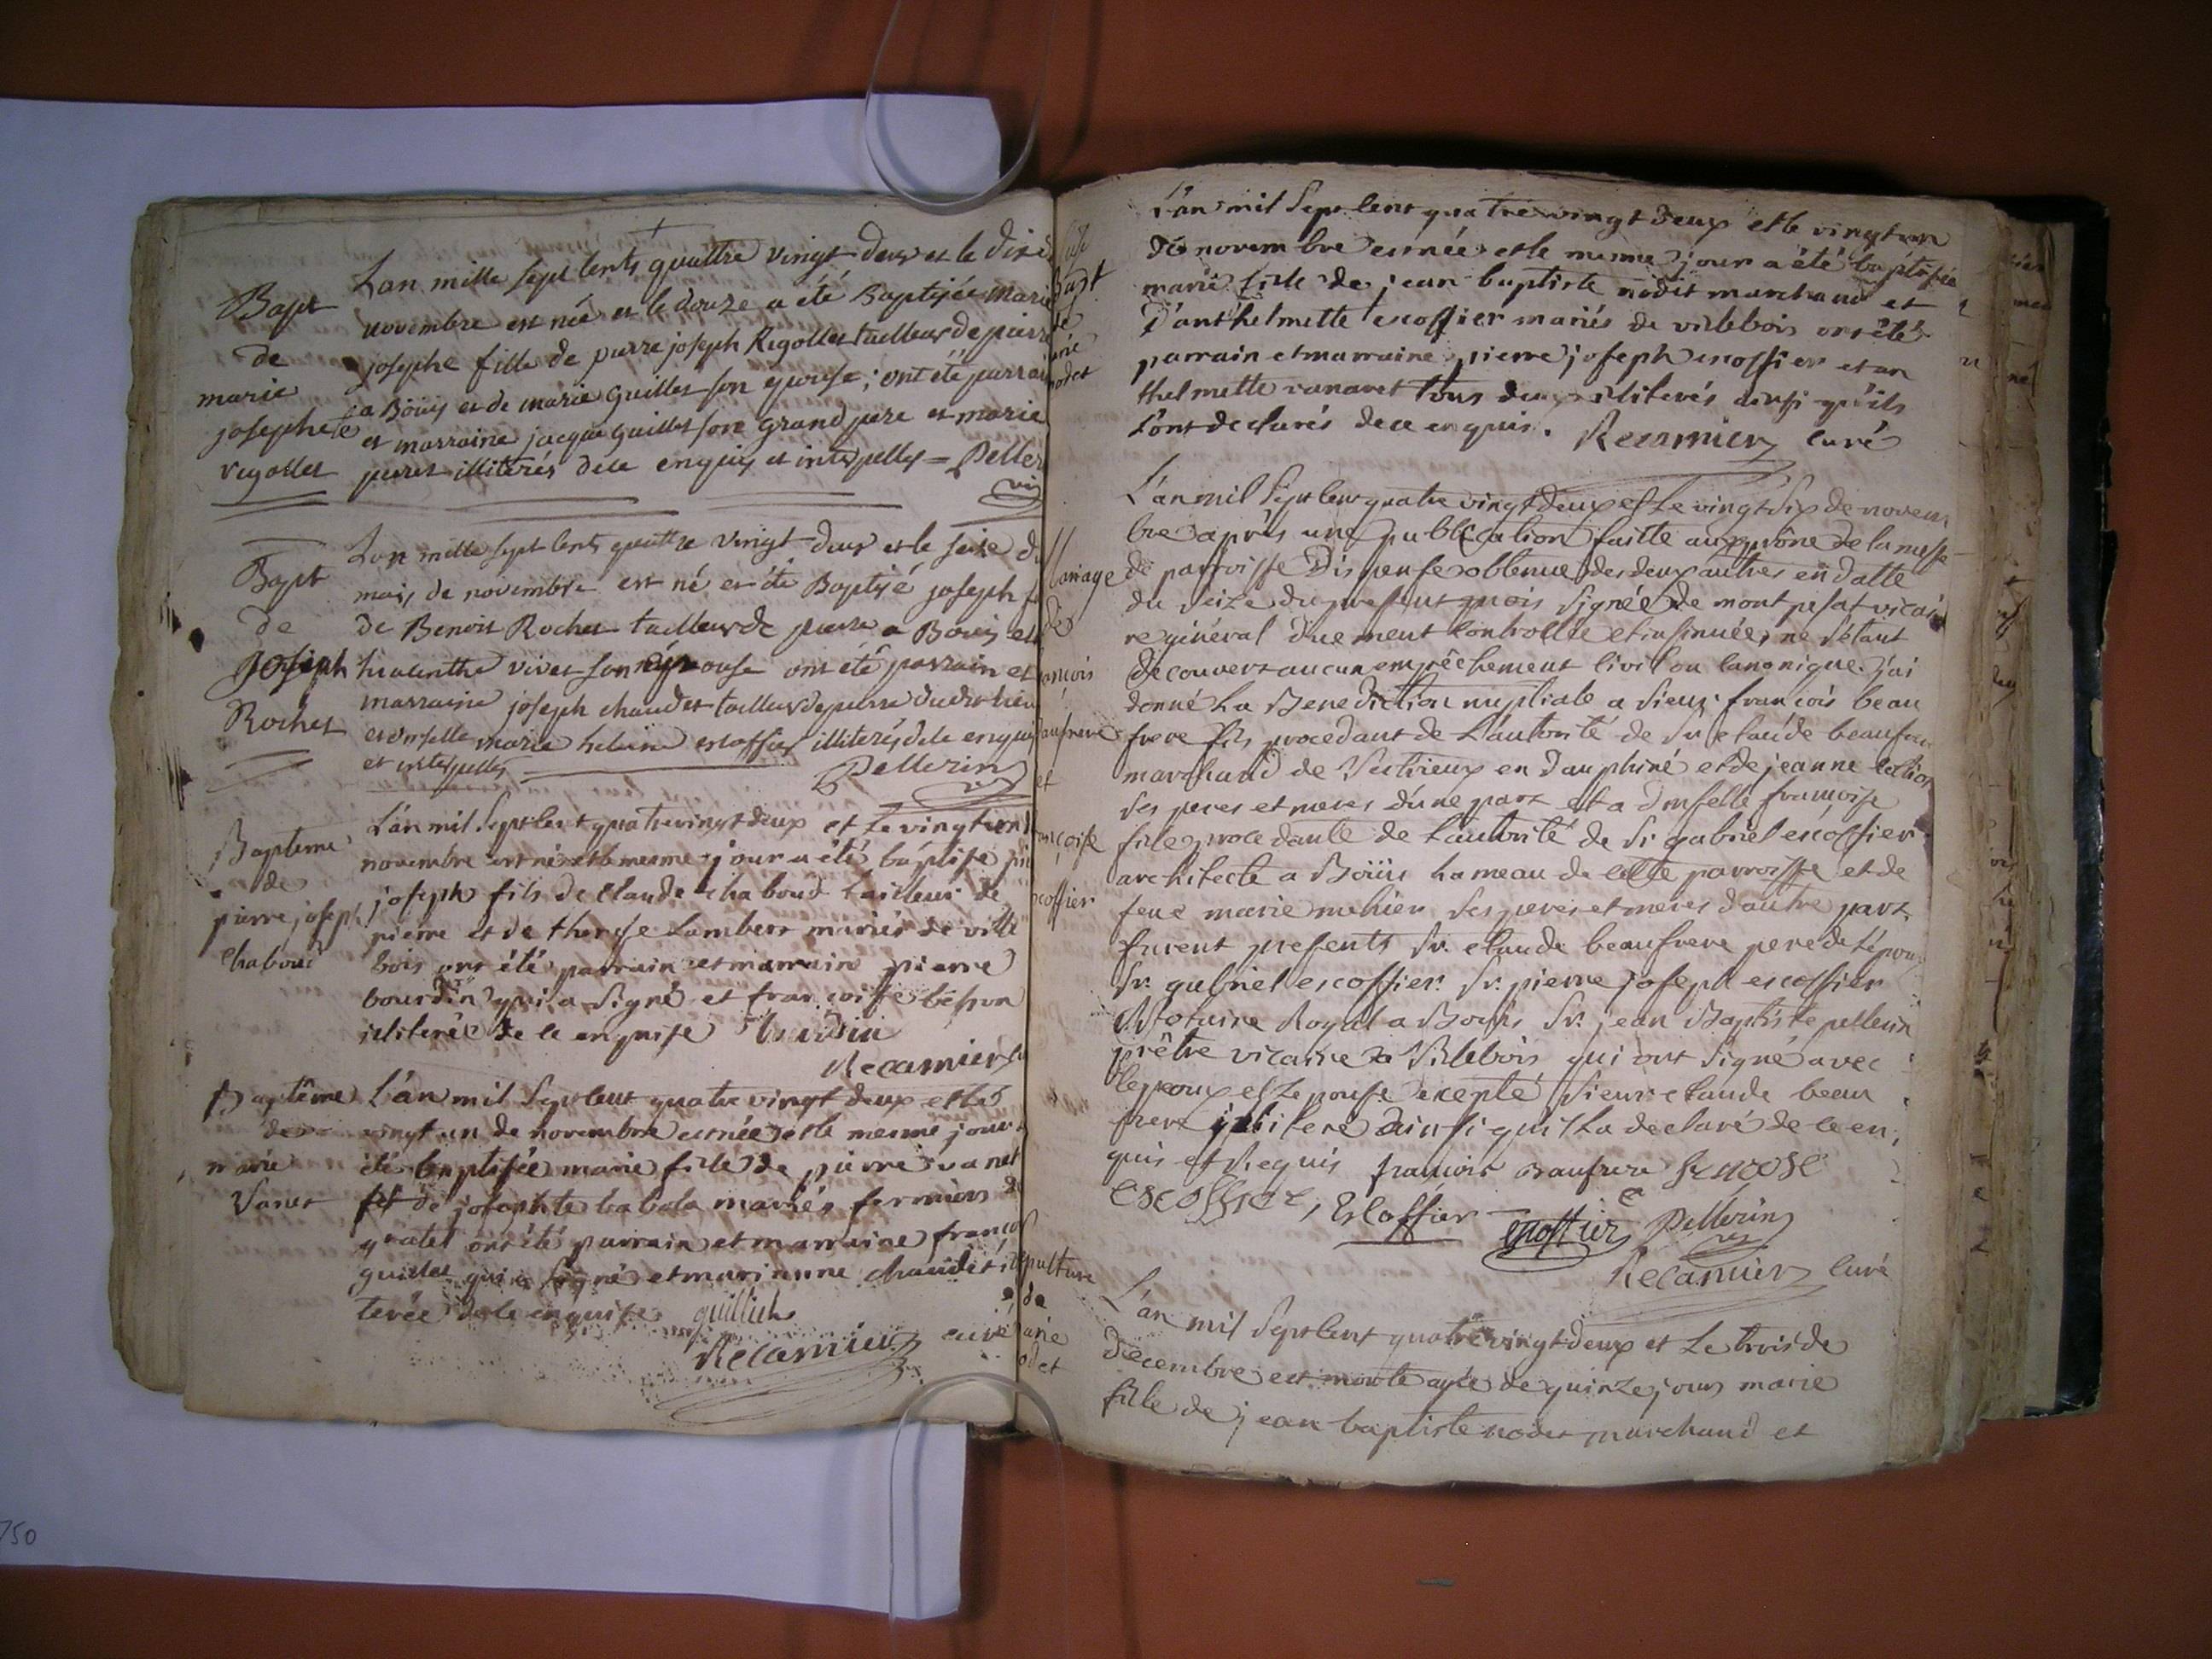 Bapt
de
marie
josephe
rigollet
Lan mille sept cents quattre vingt deux et le dix
novembre est née et le douze a été Baptisée marie
josephe fille de pierre joseph Rigollet tailleur de pierre
a Boüis et de marie guillet son epouse ; ont été parrain
et marraine jacque guillet son grand pere et marie
perret illiterés de ce enquis et interpellés = Pelle
Bapt
de
Joseph
Rochet
Lan mille sept cents quattre vingt deux et le seise du
mois de novembre est né et été Baptisé joseph
de Benoit Rochet tailleur de pierre a Bouis et
hiacinthe vivet son epouse ont été parrain et
marraine joseph chaudet tailleur de pierre dudit lieu
et dmselle marie helaine escoffier illiterés de ce enquis
et interpellés
Pellerin
Bapteme
de
pierre joseph
Chaboud
L'an mil Sept cent quatre vingt deux et Le vingt un
novembre est né et le mesme jour a été baptisé
joseph fils de Claude chaboud tailleur de
pierre et de therese Lambert mariés de ville
bois ont été parrain et marraine pierre
bourdin qui a signé et françoise besson
illiterée de ce enquise Bourdin
Recamier
Baptême
de
marie
Vanet
L'an mil Sept cent quatre vingt deux et le
vingt un de novembre est née et le mesme jour a
été baptisée marie fille de pierre vanet
et de josephte babola mariés fermiers
ont été parrain et marraine françois
guillet qui a signé et marianne chaudet
terée de ce enquise guillet
Recamier curé
Bapt
de
L'an mil Sept Cent quatre vingt deux et le vingt un
de novembre est née et le mesme jour a été baptisée
marie fille de jean baptiste nodet marchand et
D'anthelmette escoffier mariés de villebois ont été
parrain et marraine pierre joseph escoffier et an
thelmette vanaret tous deux illiterés ainsi qu'ils
L'ont declarés de ce enquis. Recamier Curé
Mariage
de
françois
Beaufrere
et
françoise
escoffier
L'an mil Sept Cent quatre vingt deux et Le vingt Six de novem
bre après une publication faitte au prône de la messe
de parroisse Dispense obtenue des deux autres en datte
du Seize du present mois signée de montpesat vicai
re général duement Controllée et insinuée, ne s'étant
decouvert aucun empêchement Civil ou Canonique j'ai
donné La Benediction nuptiale a Sieur françois beau
frere fils procedant de L'autorité de Sr claude beaufrere
marchand de Vertrieux en dauphiné et de jeanne
Ses peres et meres d'une part et a dmselle françoise
fille procedante de L'autorité de Sr gabriel escoffier
architecte a Boüis hameau de cette parroisse et de
feue marie mehier Ses peres et meres d'autre part,
furent presents Sr. claude beaufrere pere de L'époux
Sr. gabriel escoffier Sr. pierre joseph escoffier
Notaire Royal a Bouis Sr. jean Baptiste pellerin
prêtre vicaire a Villebois qui ont Signé avec
L'epoux et L'epouse excepté Sieur claude beau
frere illiteré Ainsi qu'il L'a declaré de ce en
quis et Requis françois Baufrere
escoffier, Escoffier
escoffier Pellerin
Recamier Curé
Sepulture
de
marie
nodet
L'an mil Sept Cent quatre vingt deux et Le trois de
decembre est morte agée de quinze jours marie
fille de jean baptiste nodet marchand et
750